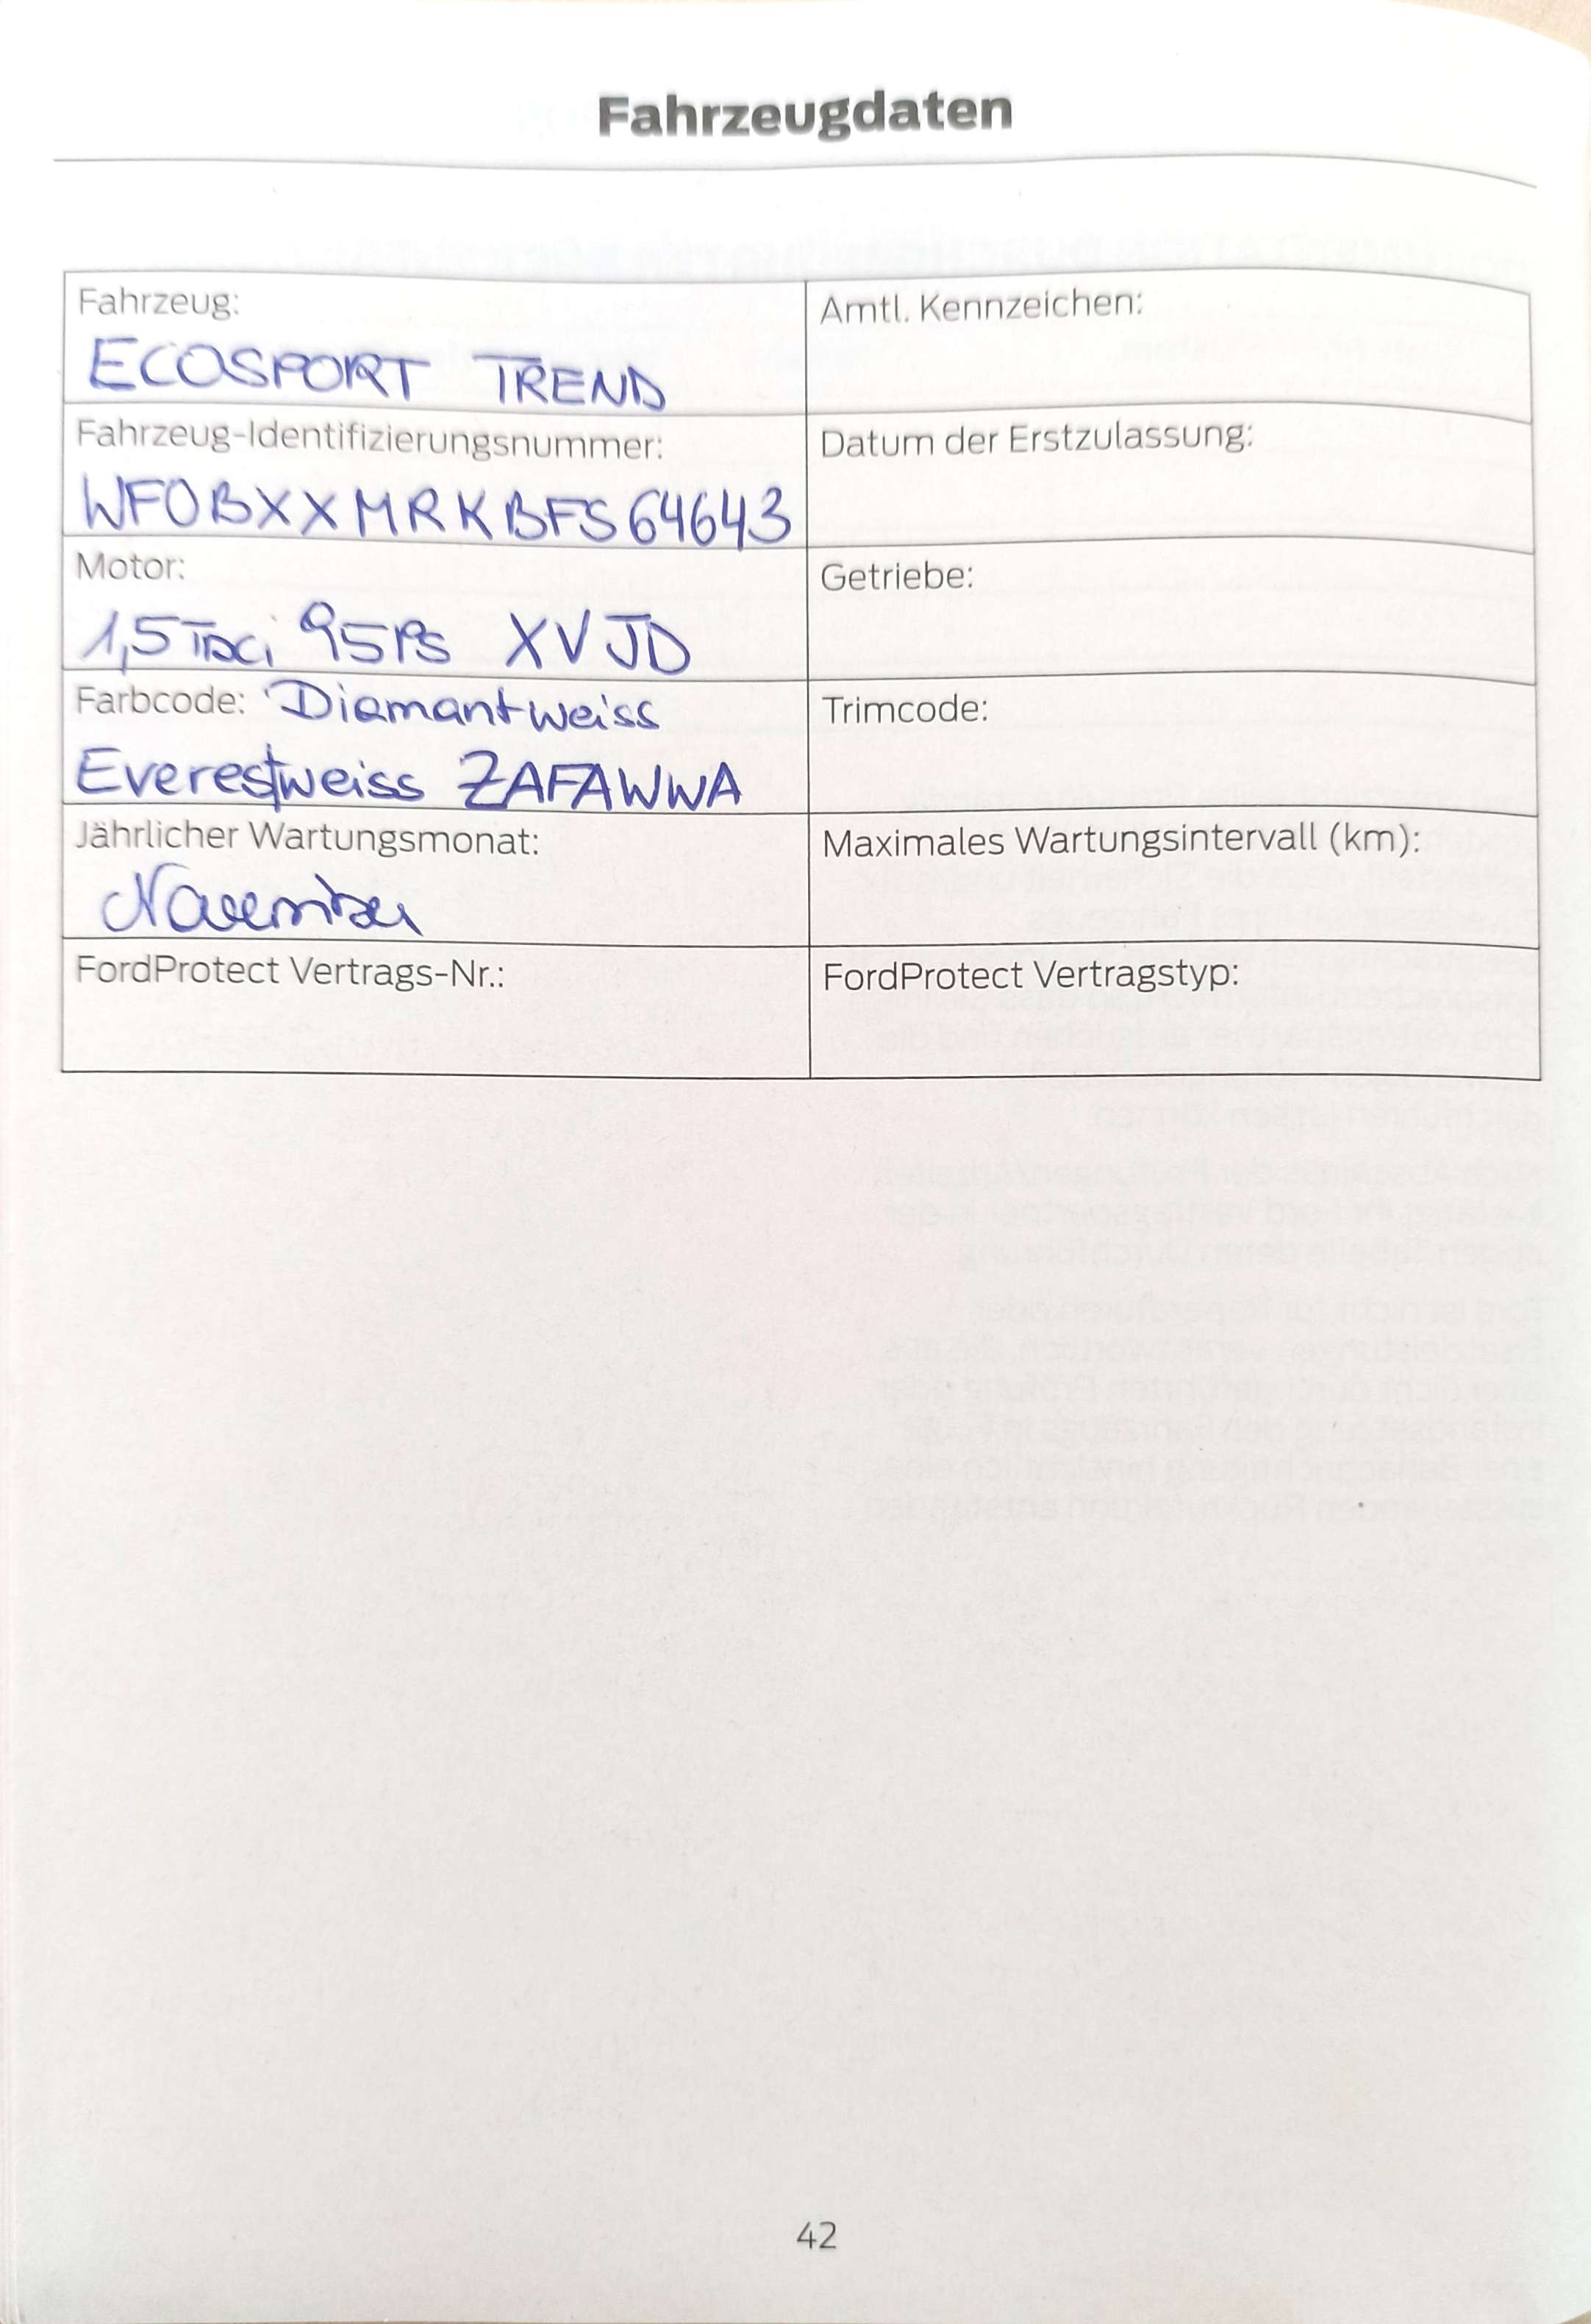 Fahrzeugdaten
Fahrzeug:
ECOSPORT TREND
Amtl. Kennzeichen:
Fahrzeug-Identifizierungsnummer:
WF0BXXMRKBFS64643
Datum der Erstzulassung:
Motor:
1,5 TDCi 95PS XVJD
Getriebe:
Farbcode: Diamantweiss
Everestweiss ZAFAWWA
Trimcode:
Jährlicher Wartungsmonat:
November
Maximales Wartungsintervall (km):
FordProtect Vertrags-Nr.:
FordProtect Vertragstyp:
42